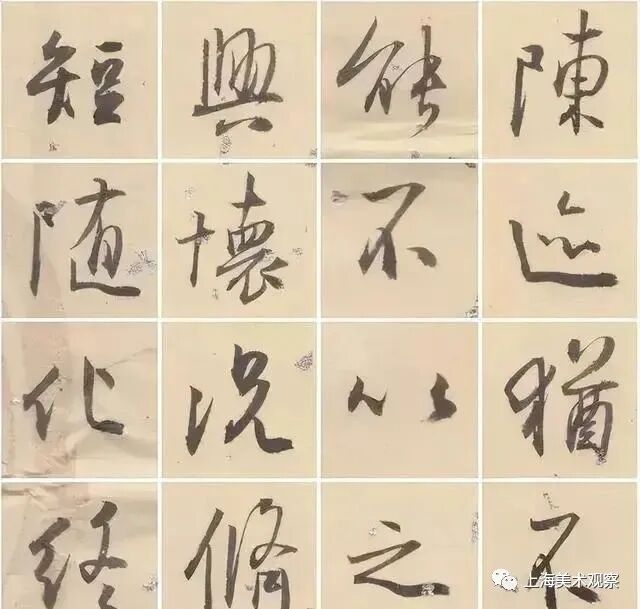 陳迹猶不
能不以之
興懷况脩
短随化终
上海美术观察